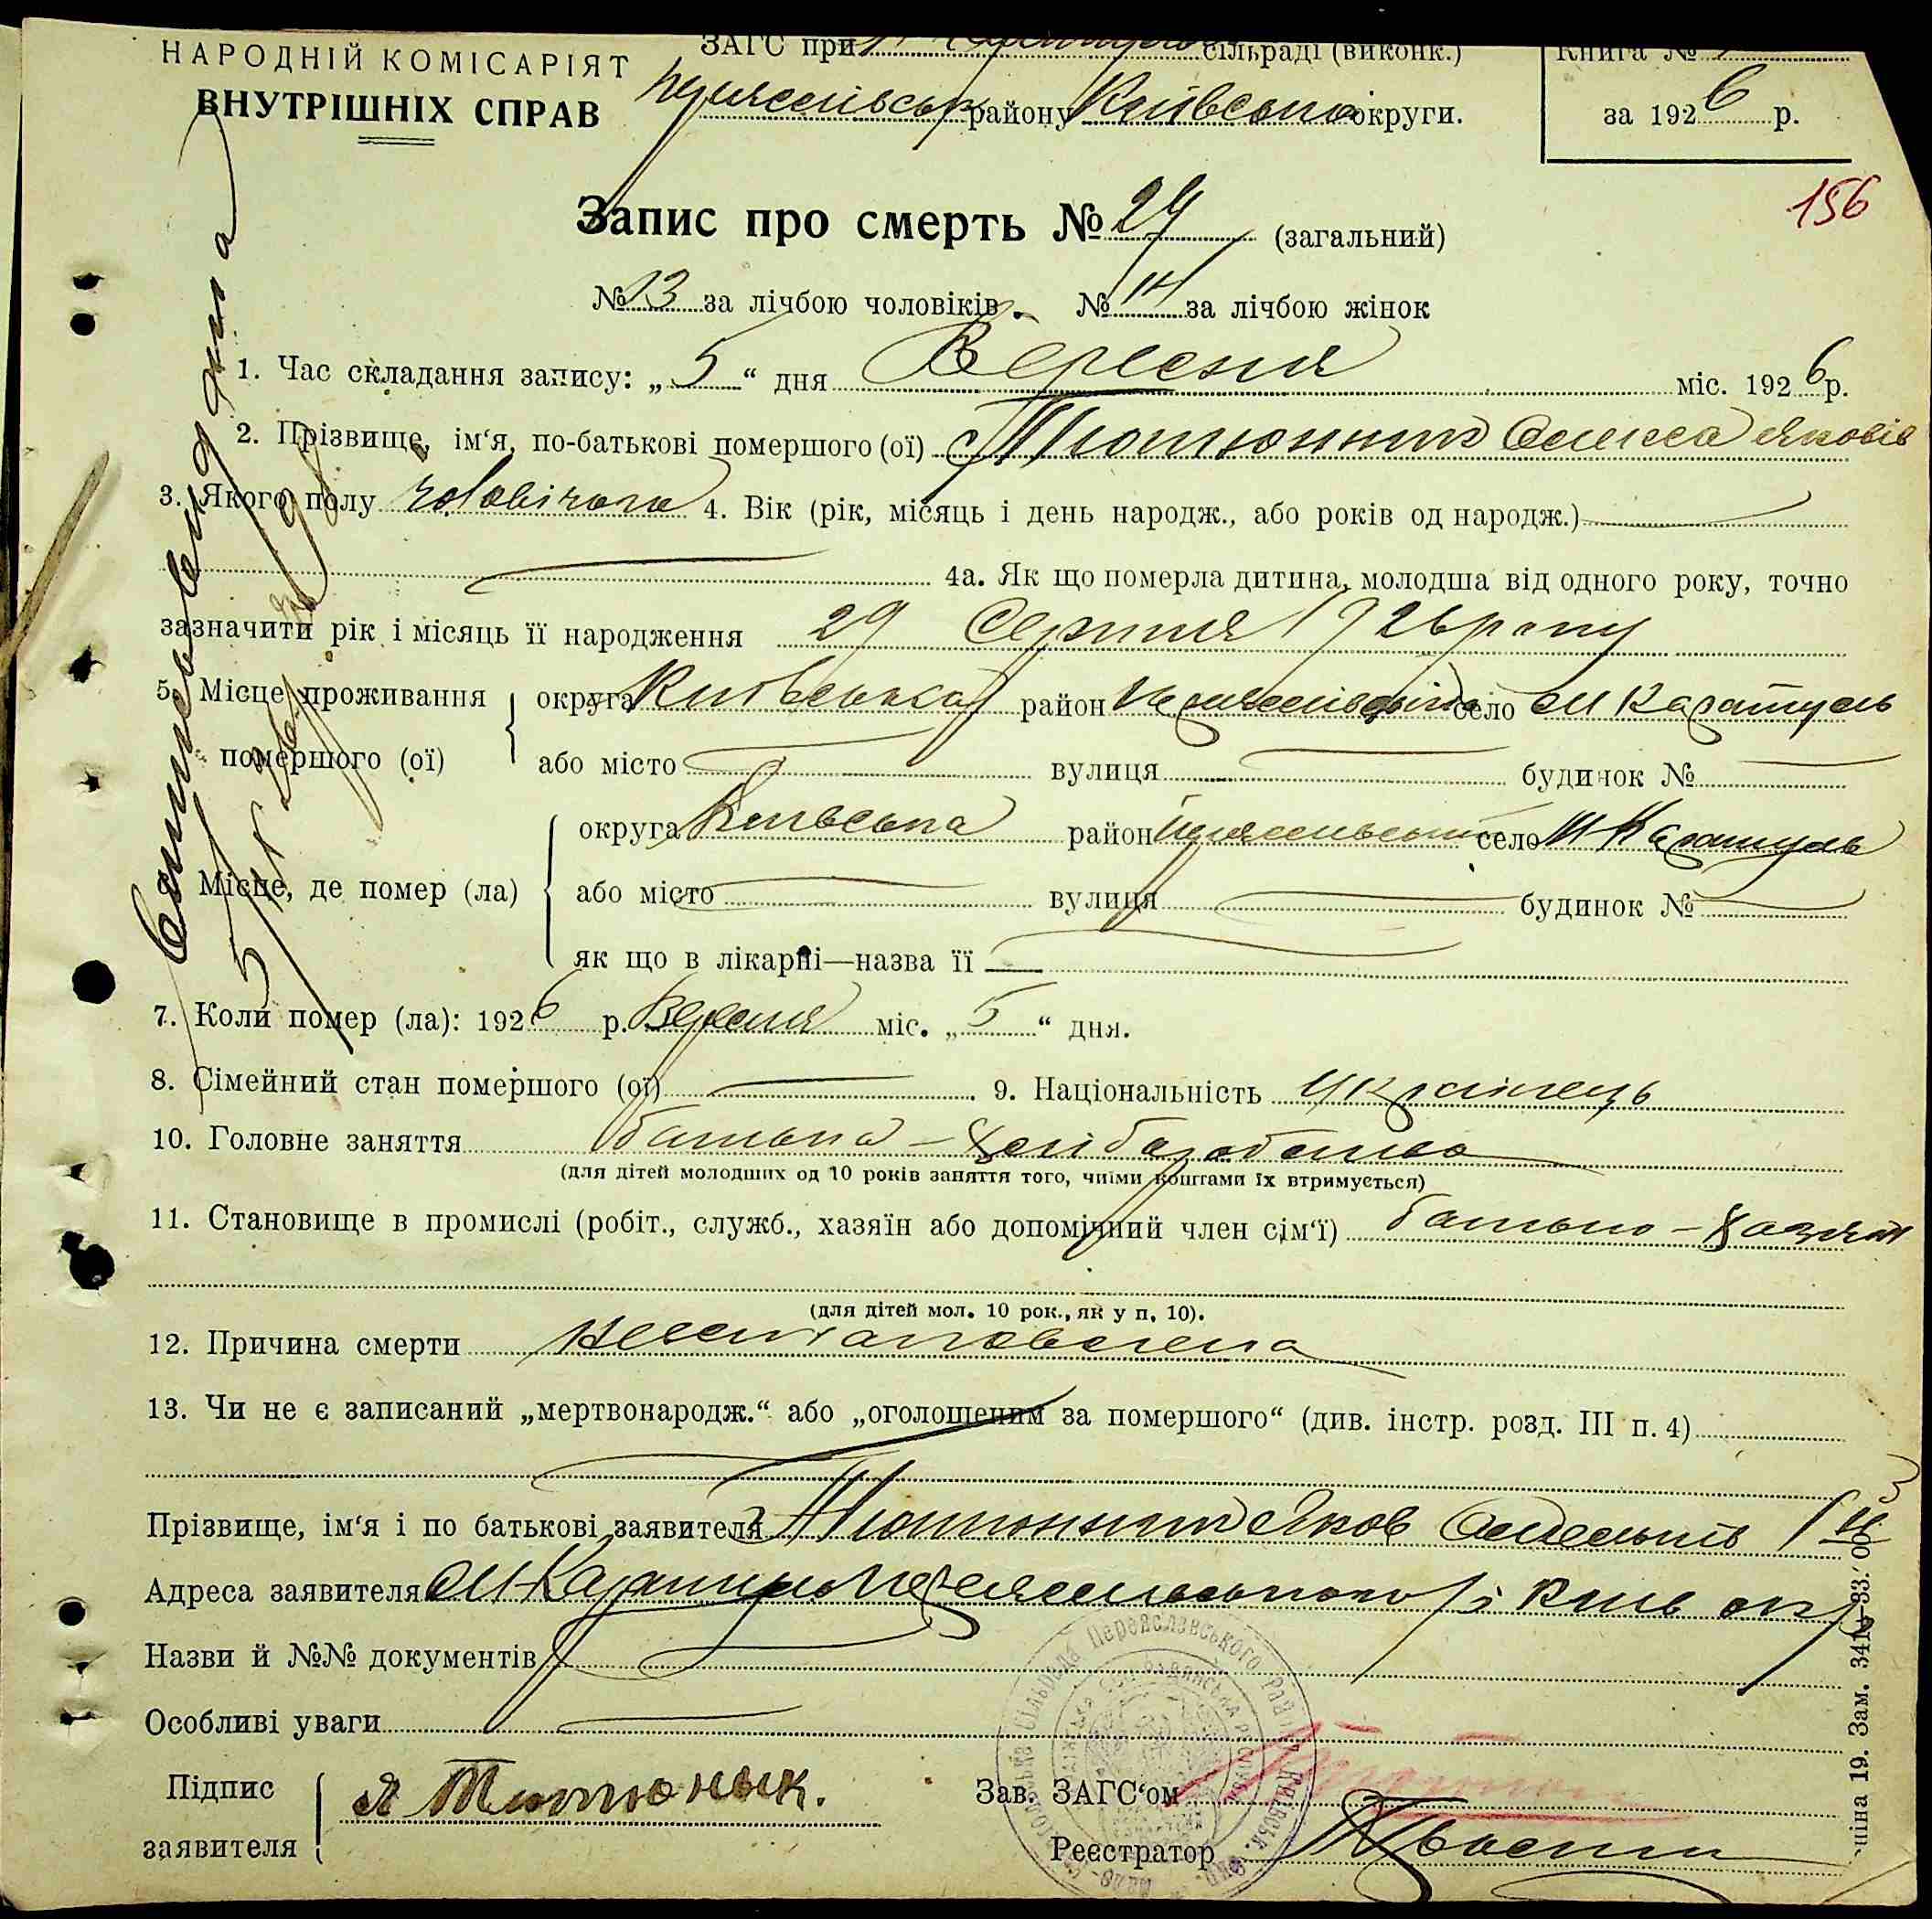 НАРОДНІЙ КОМІСАРІЯТ
ВНУТРІШНІХ СПРАВ
ЗАГС при сільраді (виконк.)
району Київської округи.
Книга №
за 1926 р.
156
Запис про смерть № 27 (загальний)
№ 13 за лічбою чоловіків. № 14 за лічбою жінок
1. Час складання запису: „5“ дня Вересня міс. 1926 р.
2. Прізвище, ім‘я, по-батькові помершого (ої) Тютюнник Олекса Яковів
3. Якого полу чоловічого 4. Вік (рік, місяць і день народж., або років од народж.)
4а. Як що померла дитина, молодша від одного року, точно
зазначити рік і місяць її народження 29 Серпня 1926 року
5. Місце проживання помершого (ої) округа Київська район село М Каратуль
або місто вулиця будинок №
Місце, де помер (ла) округа Київська район село М Каратуль
або місто вулиця будинок №
як що в лікарні—назва її
7. Коли помер (ла): 1926 р. Вересня міс. „5“ дня.
8. Сімейний стан помершого (ої) 9. Національність Українець
10. Головне заняття батька - хліборобство
(для дітей молодших од 10 років заняття того, чиїми коштами їх втримується)
11. Становище в промислі (робіт., служб., хазяїн або допомічний член сім‘ї) батько - хазяїн
(для дітей мол. 10 рок., як у п. 10).
12. Причина смерти
13. Чи не є записаний „мертвонародж.“ або „оголошеним за помершого“ (див. інстр. розд. III п. 4)
Прізвище, ім‘я і по батькові заявителя Тютюнник Яков
Адреса заявителя М Каратуль Переяславського Київ окр
Назви й №№ документів
Особливі уваги
Підпис заявителя Я Тютюнык.
Зав. ЗАГС‘ом
Реєстратор
сільрада Переяславського Району Київськ.
Зам. 341—33.